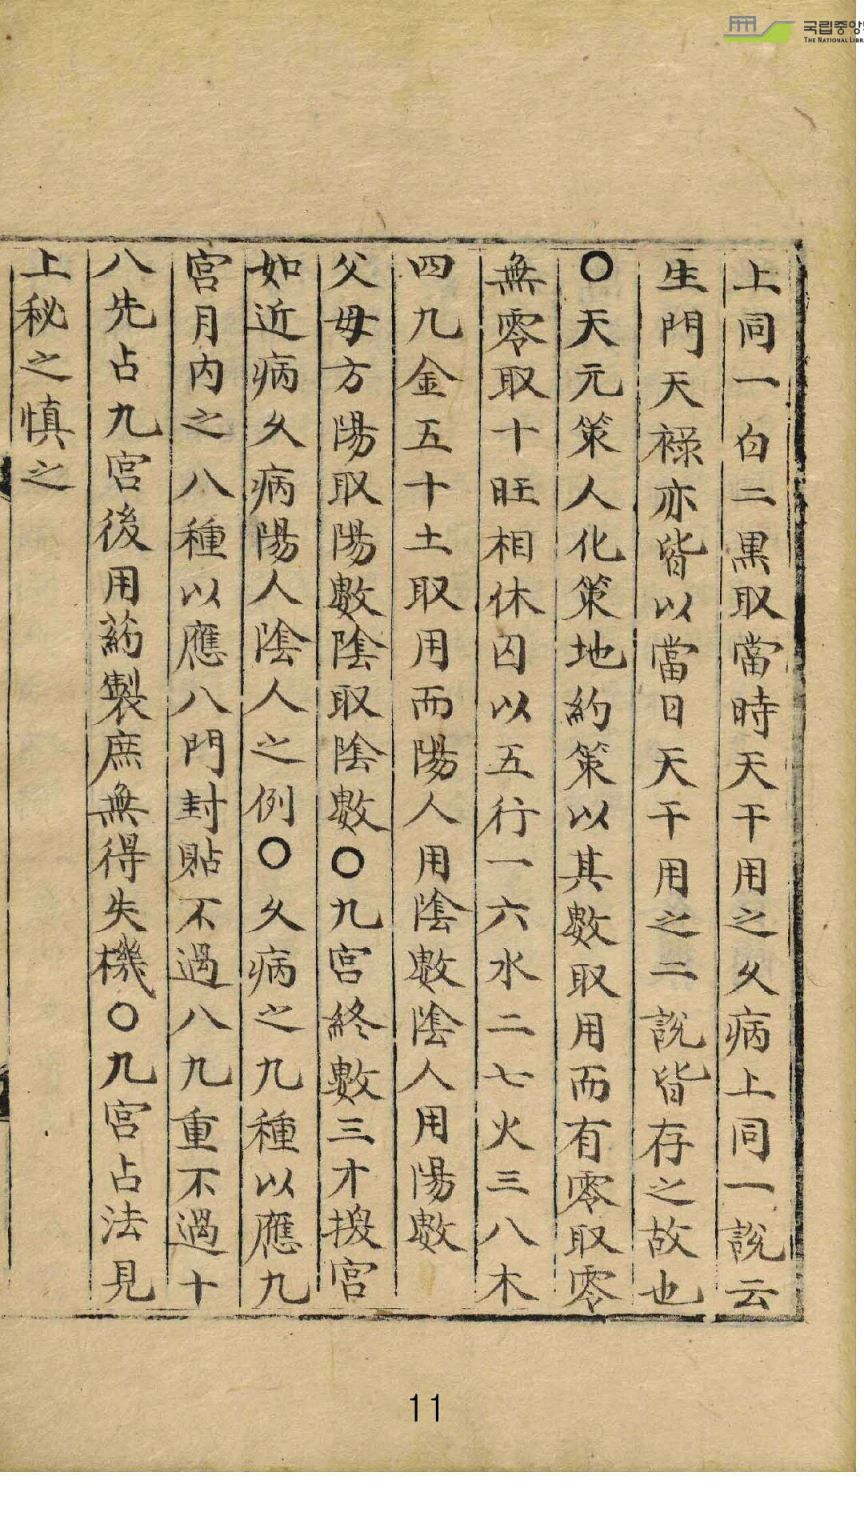 국립중앙
THE NATIONAL LIBR
上同一白二黒取當時天干用之久病上同一說云
生門天祿亦皆以當日天干用之二說皆存之故也
○天元策人化策地約策以其數取用而有零取零
無零取十旺相休囚以五行一六水二七火三八木
四九金五十土取用而陽人用陰數陰人用陽數
父母方陽取陽數陰取陰數○九宮終數三才捴宮
如近病久病陽人陰人之例○久病之九種以應九
宮月內之八種以應八門封貼不過八九重不過十
八先占九宮後用药製庶無得失機○九宮占法見
上秘之慎之
11